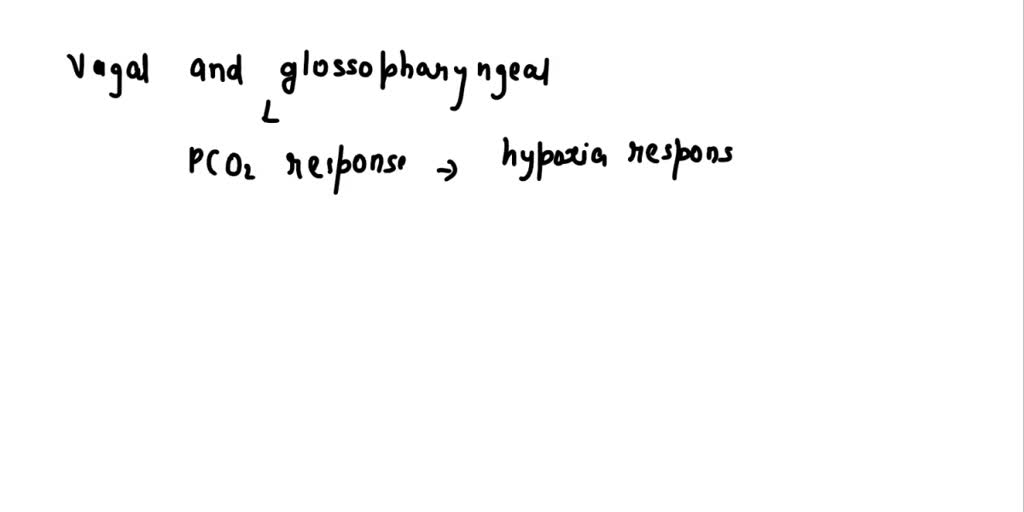 Vagal and glossopharyngeal
PCO₂ response → hypoxia respons